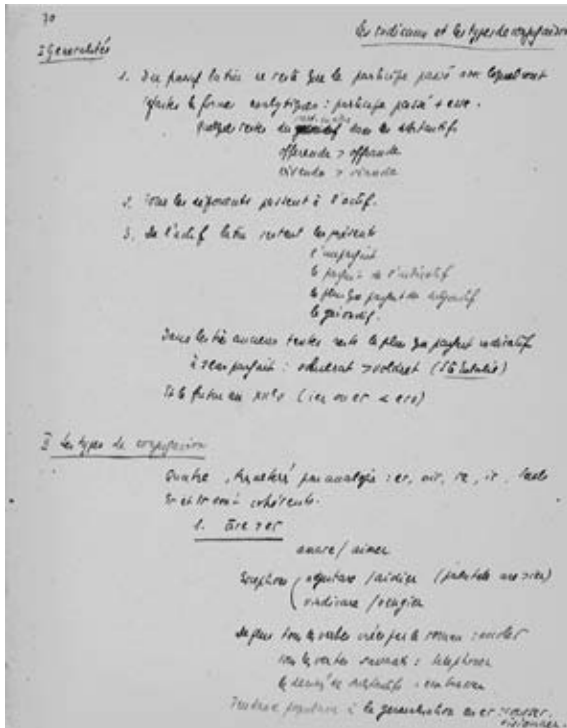 30
Les radicaux et les types de conjugaison
I Généralités
1. Du passif latin ne reste que le participe passé avec lequel sont
faites les formes analytiques : participe passé + esse.
Quelques restes du dans les substantifs
offerenda > offrande
vivenda > viande
2. Tous les déponents passent à l'actif.
3. De l'actif latin restent les présents
l'imparfait
le parfait de l'indicatif
le plus que parfait du subjonctif
le gérondif.
Dans les très anciens textes reste le plus que parfait indicatif
à sens parfait : voluerat > voldret (Ste Eulalie)
Et le futur au (ier ou er < ero)
II Les types de conjugaison
Quatre par analogie : er, oir, re, ir, seuls
er et ir sont cohérents.
1. are > er
amare / aimer
adjutare / aidier
vindicare / vengier
De plus tous les verbes créés par le roman :
tous les verbes savants : téléphoner
les dérivés de substantifs :
Tendance populaire à la généralisation en er :
visionner.